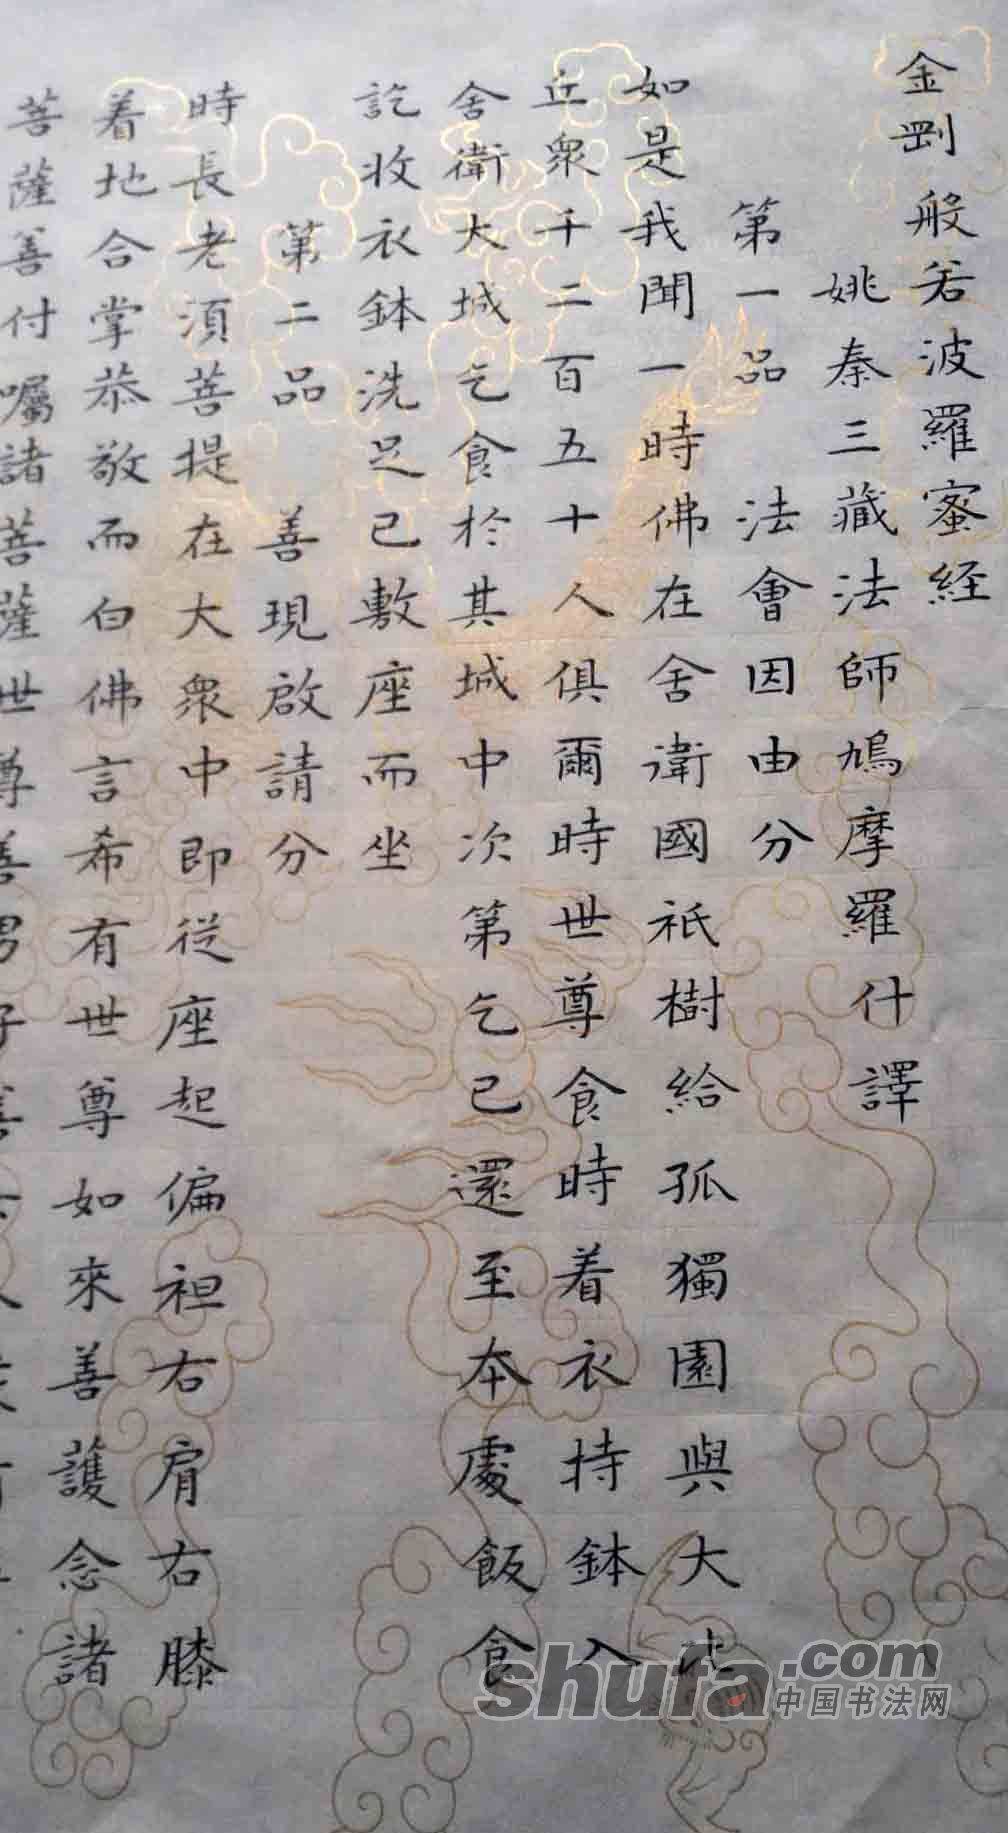 金剛般若波羅蜜経
姚秦三藏法師鳩摩羅什譯
第一品 法會因由分
如是我聞一時佛在舍衛國祇樹給孤獨園與大比
丘衆千二百五十人俱爾時世尊食時着衣持鉢入
舍衛大城乞食於其城中次第乞已還至本處飯食
訖收衣鉢洗足已敷座而坐
第二品 善現啟請分
時長老湏菩提在大衆中即從座起偏袒右肩右膝
着地合掌恭敬而白佛言希有世尊如來善護念諸
菩薩善付囑諸菩薩世尊善男子善
shufa.com
中国书法网